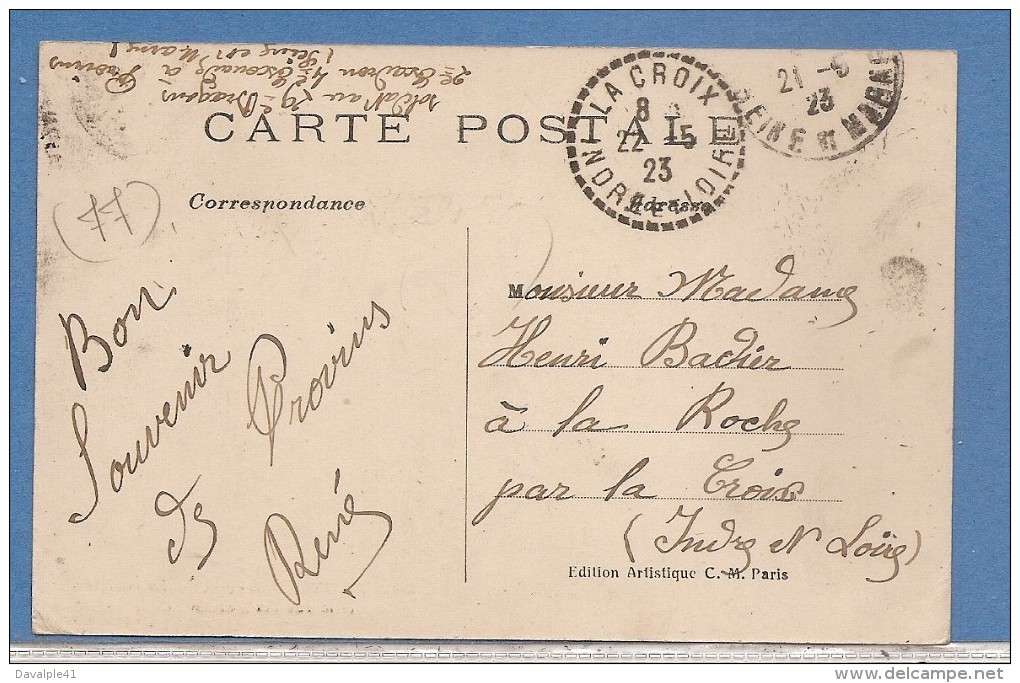 soldat au 29e Dragons
2e Escadron 4e Escouade à
Provins
(Seine et Marne)
CARTE POSTALE
LA CROIX
8
22 - 5
23
INDRE-ET-LOIRE
21 - 5
23
SEINE ET MARNE
(77)
Correspondance
Adresse
Bon
Souvenir
de Provins
René
Monsieur Madame
Henri Badier
à la Roche
par la Croix
(Indre et Loire)
Edition Artistique C. M. Paris
Davalple41
delcampe.net